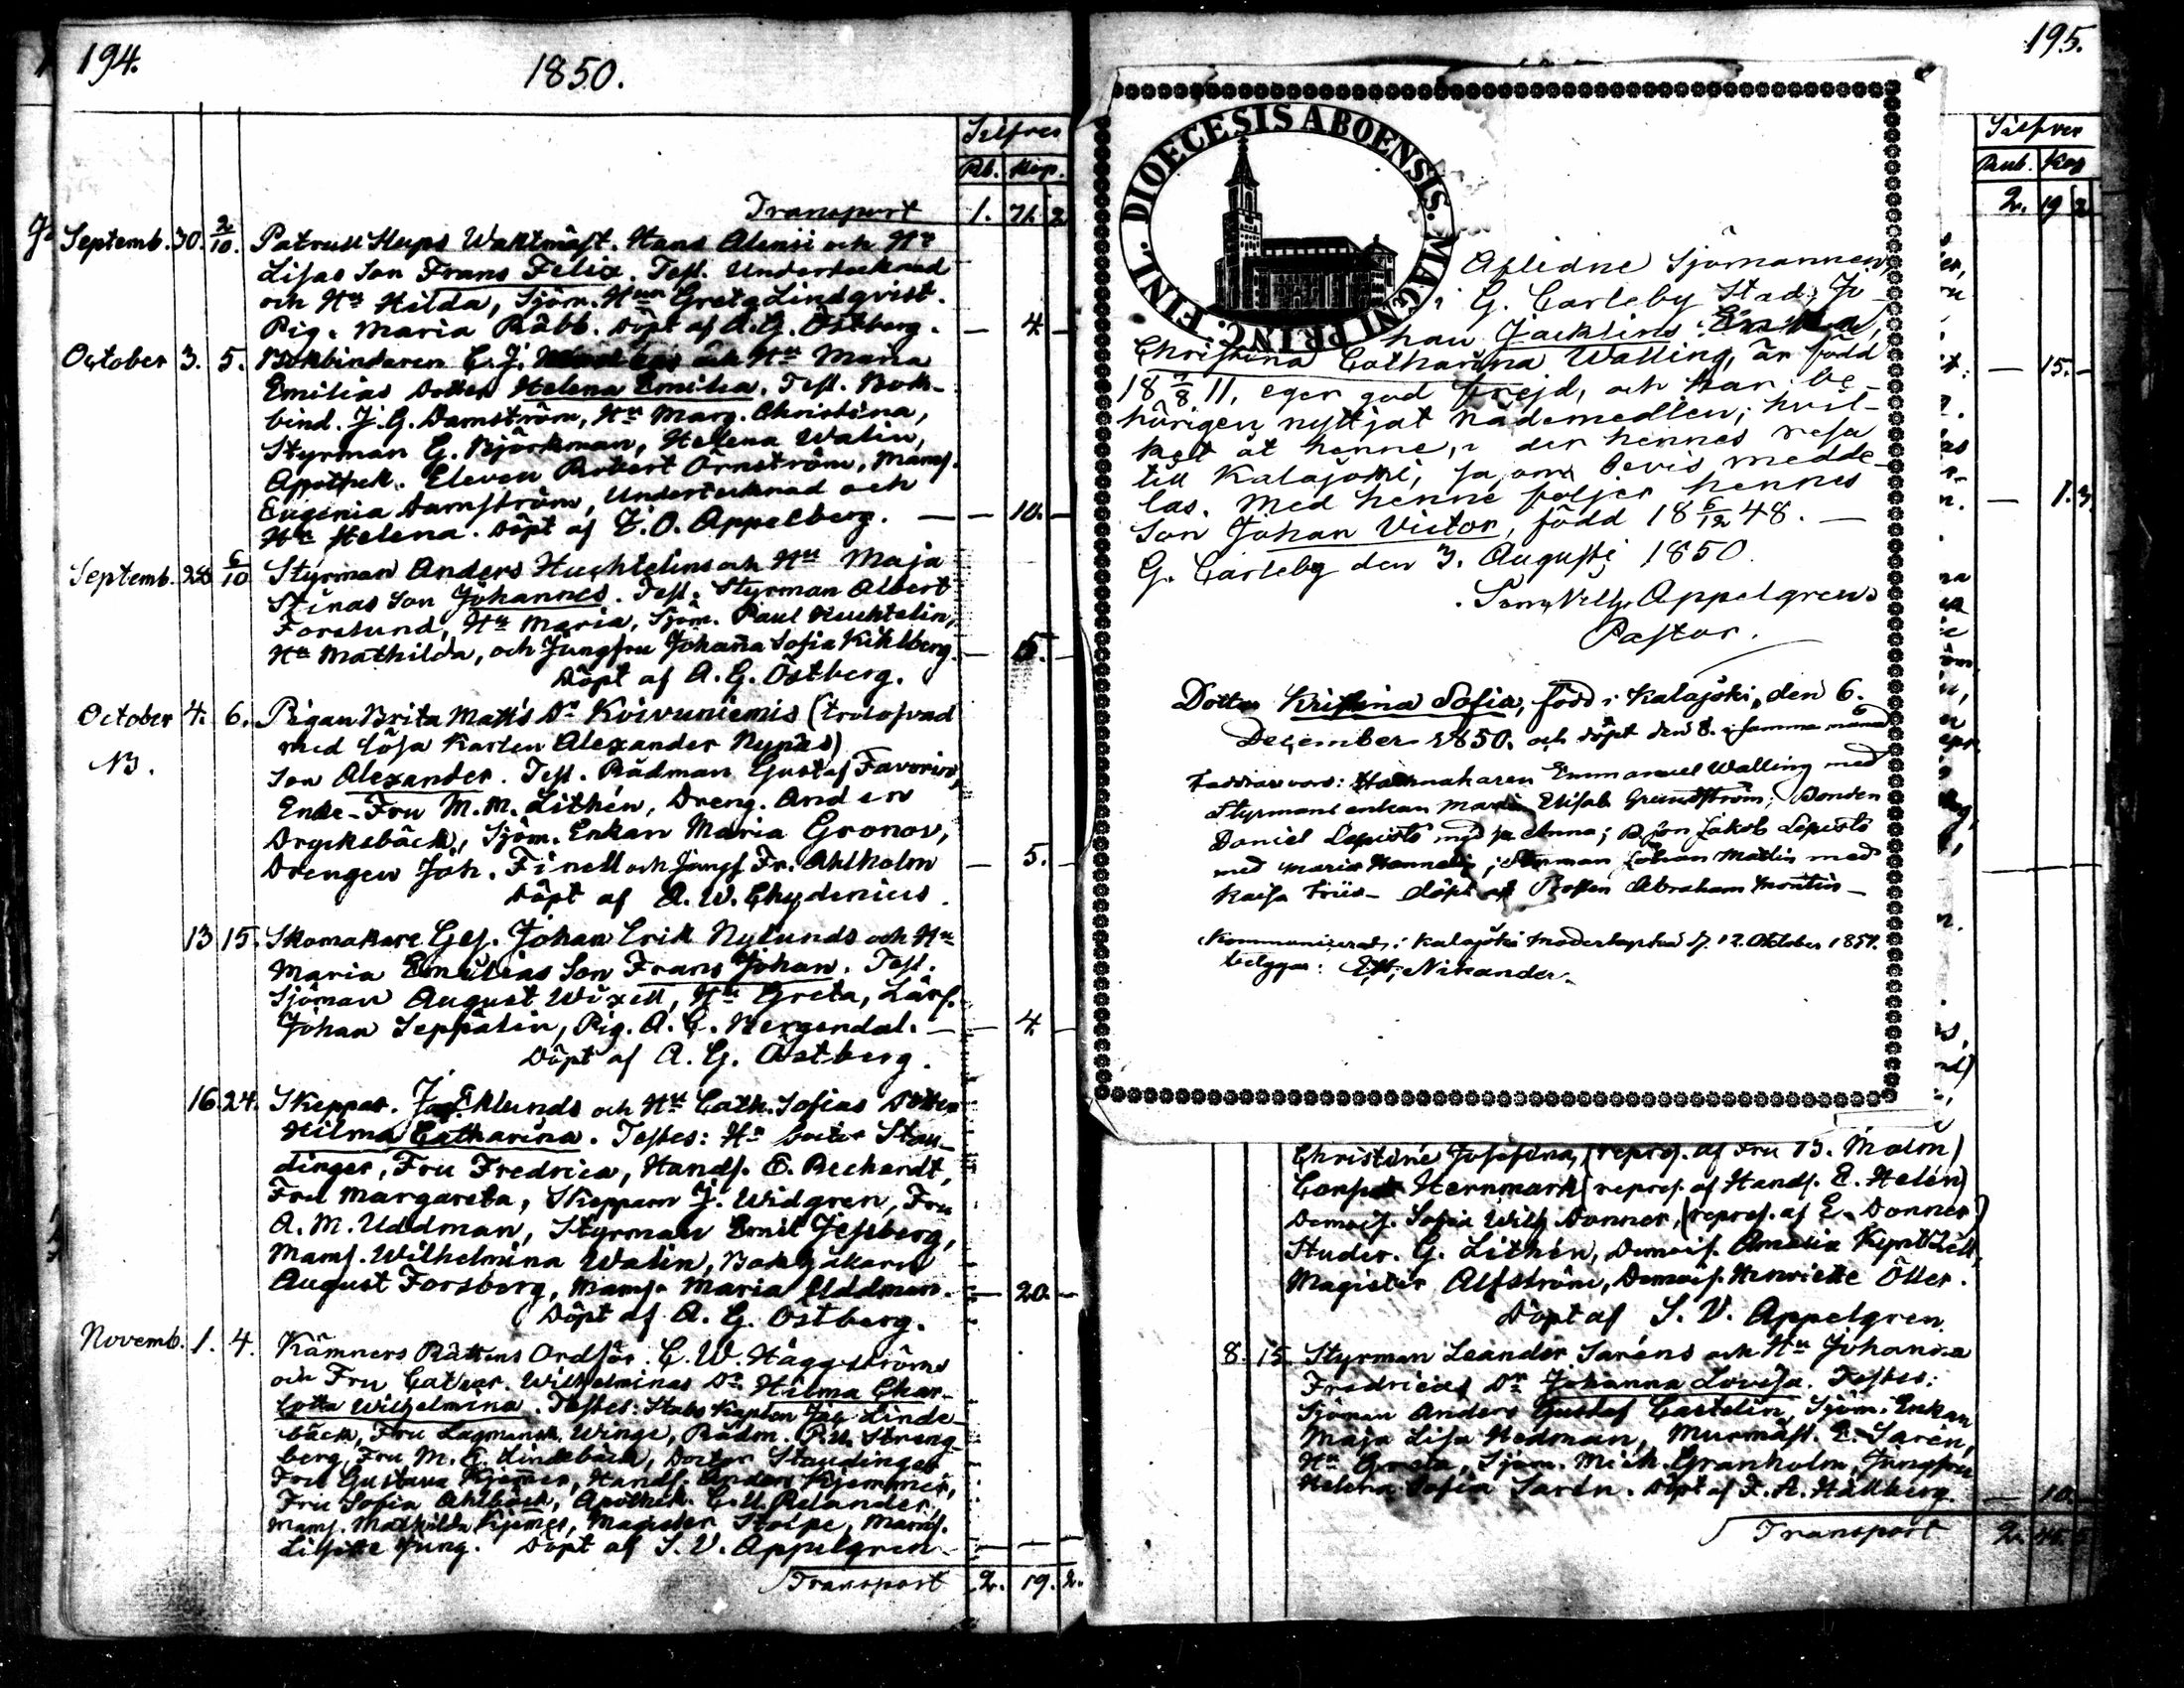 194.
1850.
Silfver
Rb. Kop.
Transport 1. 71. 2
Septemb. 30. 2/10. Patrull Slups Waktmäst. Hans Alenii och Hu
Lisas Son Frans Felix. Test. Undertecknad
och Hu Hilda, Sjöm. Hun Greta Lindqvist.
Pig. Maria Räbb. Döpt af A. G. Östberg. — 4. —
October 3. 5. Bokbindaren C. J. och Hu Maria
Emilias Dotter Helena Emilia. Test. Bok-
bind. J. G. Damström, Hu Marg. Christina,
Styrman G. Björkman, Helena Walin,
Apothek. Eleven Robert Örnström, Mams.
Eugenia Damström, Undertecknad och
Hu Helena. Döpt af J. O. Appelberg. — — 10. —
Septemb. 28 6/10 Styrman Anders Huchtelins och Hu Maja
Stinas Son Johannes. Test. Styrman Albert
Forslund, Hu Maria, Sjöm. Paul Huchtelin,
Hu Mathilda, och Jungfru Johana Sofia Kihlberg. — 5. —
Döpt af A. G. Östberg.
October 4. 6. Pigan Brita Matts Dr Kvivuniemis (trolofvad
NB. med lösa Karlen Alexander Nynäs)
Son Alexander. Test. Rådman Gustaf Favorin,
Enke-Fru M. M. Lithén, Dreng. Anders
Drycksbäck, Sjöm. Enkan Maria Gronov,
Drengen Joh. Finell och Jungf. Fr. Ahlholm — 5. —
Döpt af A. W. Chydenius.
13 15. Skomakare Ges. Johan Erik Nylunds och Hu
Maria Emilias Son Frans Johan. Test:
Sjöman August Wixell, Hu Greta, Lärl.
Johan Seppälin, Pig. A. C. Bergendal. — — 4. —
Döpt af A. G. Östberg.
16. 24. Skeppar. Jac. Eklunds och Hu Cath. Sofias Dotter
Hilma Catharina. Testes: Hr Doctor Stau-
dinger, Fru Fredrica, Handl. E. Rechardt,
Fru Margareta, Skepparn J. Widgren, Fru
A. M. Uddman, Styrman Emil Jesberg,
Mams. Wilhelmina Walin, Bokhållaren
August Forsberg, Mams. Maria Uddman. — 20. —
Döpt af A. G. Östberg.
Novemb. 1. 4. Kämners Rättens Ordför. C. W. Häggströms
och Fru Cathar. Wilhelminas Dr Hilma Char-
lotta Wilhelmina. Testes: Stabs Kapten Jac Linde-
bäck, Fru Lagmansk. Winge, Rådm. P. U. Streng-
berg, Fru M. C. Lindebäck, Doctor Staudinger
Fru Gustava Kjemer, Handl. Anders Kjemmer,
Fru Sofia Ahlbäck, Apothek. C. U. Relander,
Mams. Mathilda Kjemer, Magister Stolpe, Mams.
Lisette Jung. Döpt af S. V. Appelgren — — —
Transport 2. 19. 2.
195.
Silfver
Rub. Kop
2. 19 2
FINL. DIOECESIS ABOENSIS. MAGNI PRINC.
Aflidne Sjömannen,
i G. Carleby Stad, Jo-
han Jacklins Enka,
Christina Catharina Walling, är född
18 7/8 11, eger god frejd, och har be-
hörigen nyttjat nådemedlen; hvil-
ket åt henne, i der hennes resa
till Kalajoki, så som bevis medde-
las. Med henne följer hennes
Son Johan Victor, född 18 6/12 48. —
G. Carleby den 3. Augusti 1850.
Sam. Vilh. Appelgren
Pastor.
Dotter Kristina Sofia, född i Kalajoki, den 6.
December 1850. och döpt den 8. i samma månad
Faddrar voro: Emmanuel Walling med
Styrmans enkan Maria Elisab Grundström; Bonden
Daniel Lepistö med h. Anna; B. son Jakob Lepistö
med Maria Hannelin; Styrman Johan Matlin med
Kaisa Friis — döpt af Abraham Montin —
Kommunicerad i Kalajoki Moderkyrka d. 12. Oktober 1851.
betygar: Nikander.
— 15. —
— 1. 3
Christine Josefina, (repres. af Fru B. Malm)
Hernmark (repres. af Handl. E. Helén)
Demois. Sofia Wilh. Donner, (repres. af E. Donner)
Studer. G. Lithén, Demois. Amalia Kyntzell,
Magister Alfström, Demois. Henriette Öller.
Döpt af S. V. Appelgren
8. 15. Styrman Leander Saréns och Hu Johanna
Fredricas Dr Johanna Lovisa. Testes:
Sjöman Anders Gustaf Castelin, Sjöm. Enkan
Maja Lisa Hedman, Murmäst. E. Saren,
Hu Greta, Sjöm. Mich. Granholm, Jungfru
Helena Sofia Sarén. Döpt af F. A. Hällberg. — 10.
Transport 2.